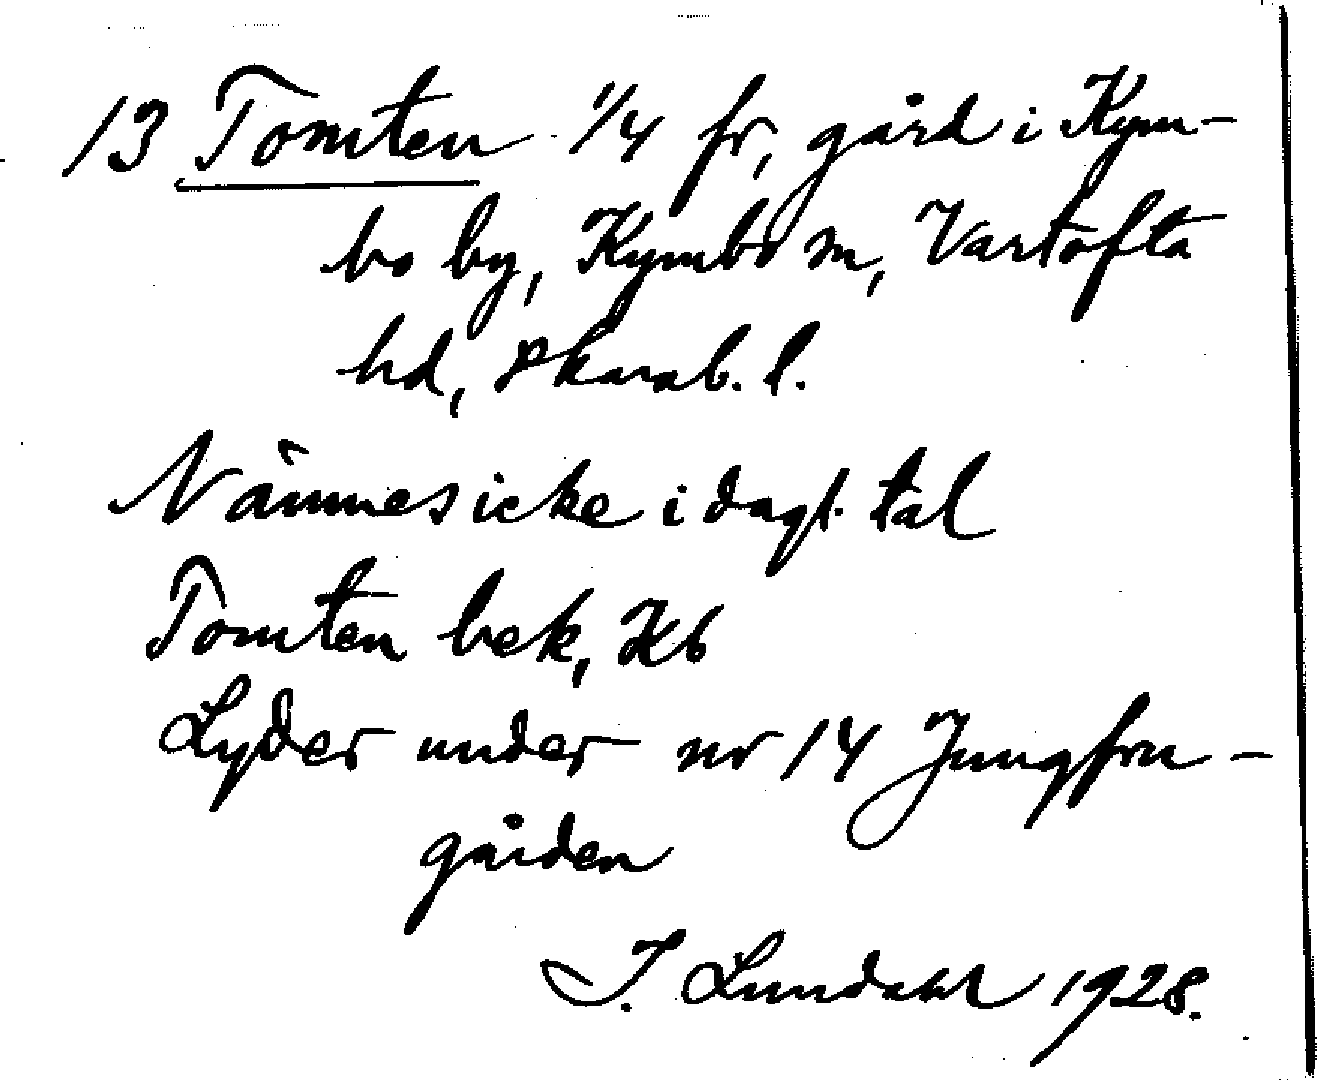 13 Tomten 1/4 fr, gård i Kym-
bo by, Kymbo sn, Vartofta
hd, Skarab. l.
Nämnes icke i dagl. tal
Tomten bek, Kb
Lyder under nr 14 Jungfru-
gården
I. Lundahl 1928.